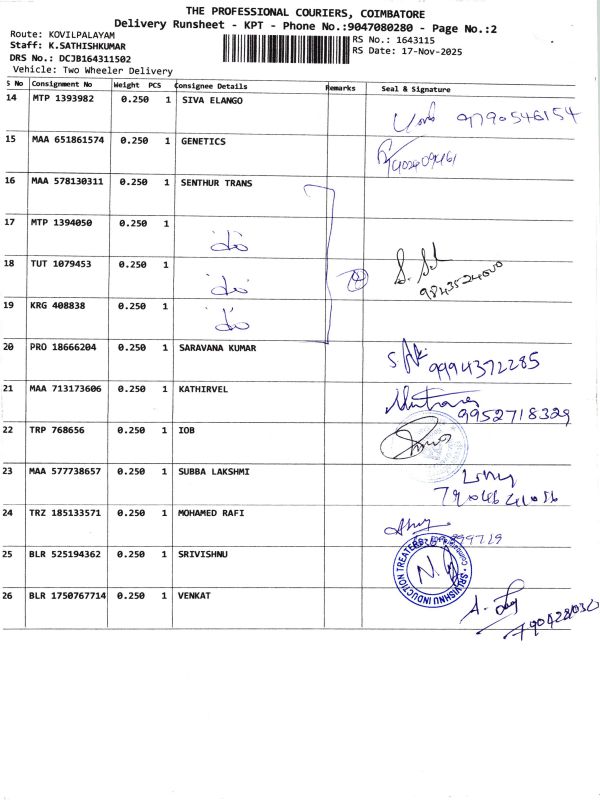 THE PROFESSIONAL COURIERS, COIMBATORE
Delivery Runsheet - KPT - Phone No.:9047080280 - Page No.:2
Route: KOVILPALAYAM
RS No.: 1643115
Staff: K.SATHISHKUMAR
RS Date: 17-Nov-2025
DRS No.: DCJB164311502
Vehicle: Two Wheeler Delivery
S No Consignment No Weight PCS Consignee Details Remarks Seal & Signature
14 MTP 1393982 0.250 1 SIVA ELANGO
9790546154
15 MAA 651861574 0.250 1 GENETICS
16 MAA 578130311 0.250 1 SENTHUR TRANS
17 MTP 1394050 0.250 1
18 TUT 1079453 0.250 1
9843524000
19 KRG 408838 0.250 1
20 PRO 18666204 0.250 1 SARAVANA KUMAR
9994372285
21 MAA 713173606 0.250 1 KATHIRVEL
9952718329
22 TRP 768656 0.250 1 IOB
23 MAA 577738657 0.250 1 SUBBA LAKSHMI
24 TRZ 185133571 0.250 1 MOHAMED RAFI
25 BLR 525194362 0.250 1 SRIVISHNU
SRI VISHNU INDUCTION TREATERS
26 BLR 1750767714 0.250 1 VENKAT